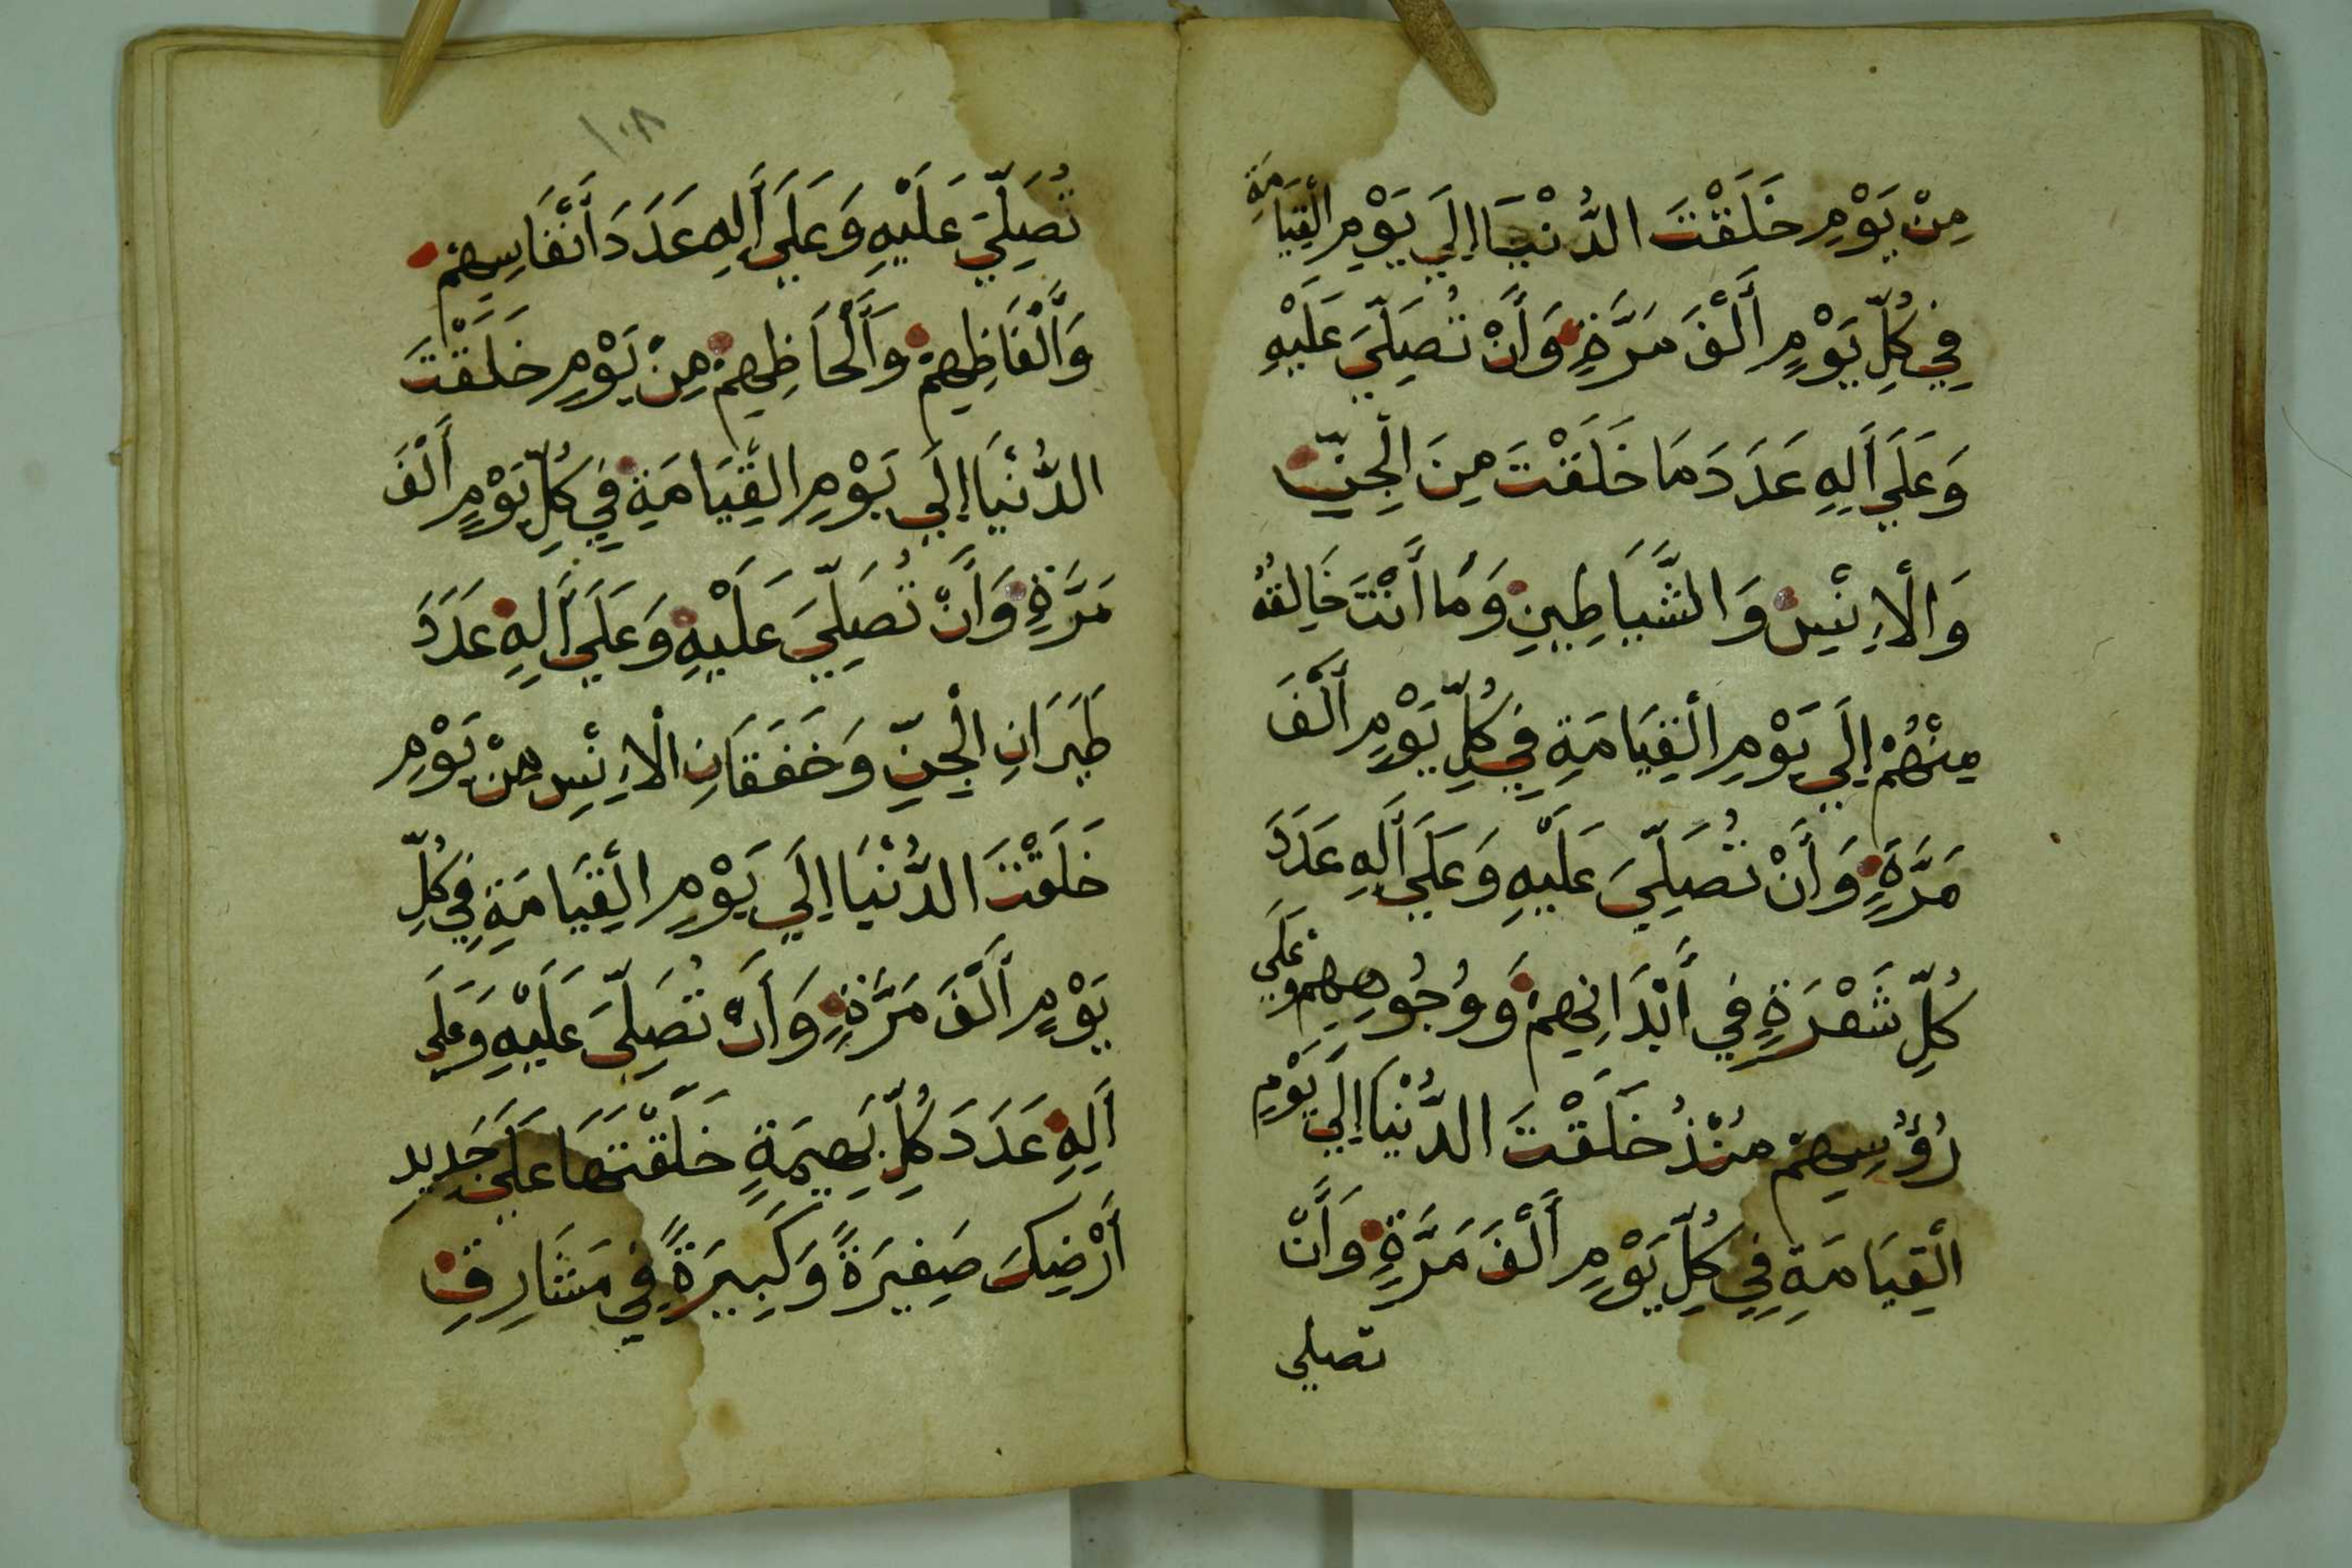 مِنْ يَوْمِ خَلَقْتَ الدُّنْيَا إِلَي يَوْمِ الْقِيَامَةِ
فِي كُلِّ يَوْمٍ أَلْفَ مَرَّةٍ وَأَنْ تُصَلِّيَ عَلَيْهِ
وَعَلَي أَلِهِ عَدَدَ مَا خَلَقْتَ مِنَ الْجِنِّ
وَالْاِنْسِ وَالشَّيَاطِينِ وَمَا أَنْتَ خَالِقُهُ
مِنْهُمْ إِلَي يَوْمِ الْقِيَامَةِ فِي كُلِّ يَوْمٍ أَلْفَ
مَرَّةٍ وَأَنْ تُصَلِّيَ عَلَيْهِ وَعَلَي أَلِهِ عَدَدَ
كُلِّ شَعْرَةٍ فِي أَبْدَانِهِمْ وَوُجُوهِهِمْ وَعَلَي
رُؤُسِهِمْ مُنْذُ خَلَقْتَ الدُّنْيَا إِلَي يَوْمِ
الْقِيَامَةِ فِي كُلِّ يَوْمٍ أَلْفَ مَرَّةٍ وَأَنْ
تصلي
١٠٨
تُصَلِّيَ عَلَيْهِ وَعَلَي أَلِهِ عَدَدَ أَنْفَاسِهِمْ
وَأَلْفَاظِهِمْ وَأَلْحَاظِهِمْ مِنْ يَوْمِ خَلَقْتَ
الدُّنْيَا إِلَي يَوْمِ الْقِيَامَةِ فِي كُلِّ يَوْمٍ أَلْفَ
مَرَّةٍ وَأَنْ تُصَلِّيَ عَلَيْهِ وَعَلَي أَلِهِ عَدَدَ
طَيَرَانِ الْجِنِّ وَخَفَقَانِ الْاِنْسِ مِنْ يَوْمِ
خَلَقْتَ الدُّنْيَا إِلَي يَوْمِ الْقِيَامَةِ فِي كُلِّ
يَوْمٍ أَلْفَ مَرَّةٍ وَأَنْ تُصَلِّيَ عَلَيْهِ وَعَلَي
أَلِهِ عَدَدَ كُلِّ بَهِيمَةٍ خَلَقْتَهَا عَلَي جَدِيدِ
أَرْضِكَ صَغِيرَةً وَكَبِيرَةً فِي مَشَارِقِ